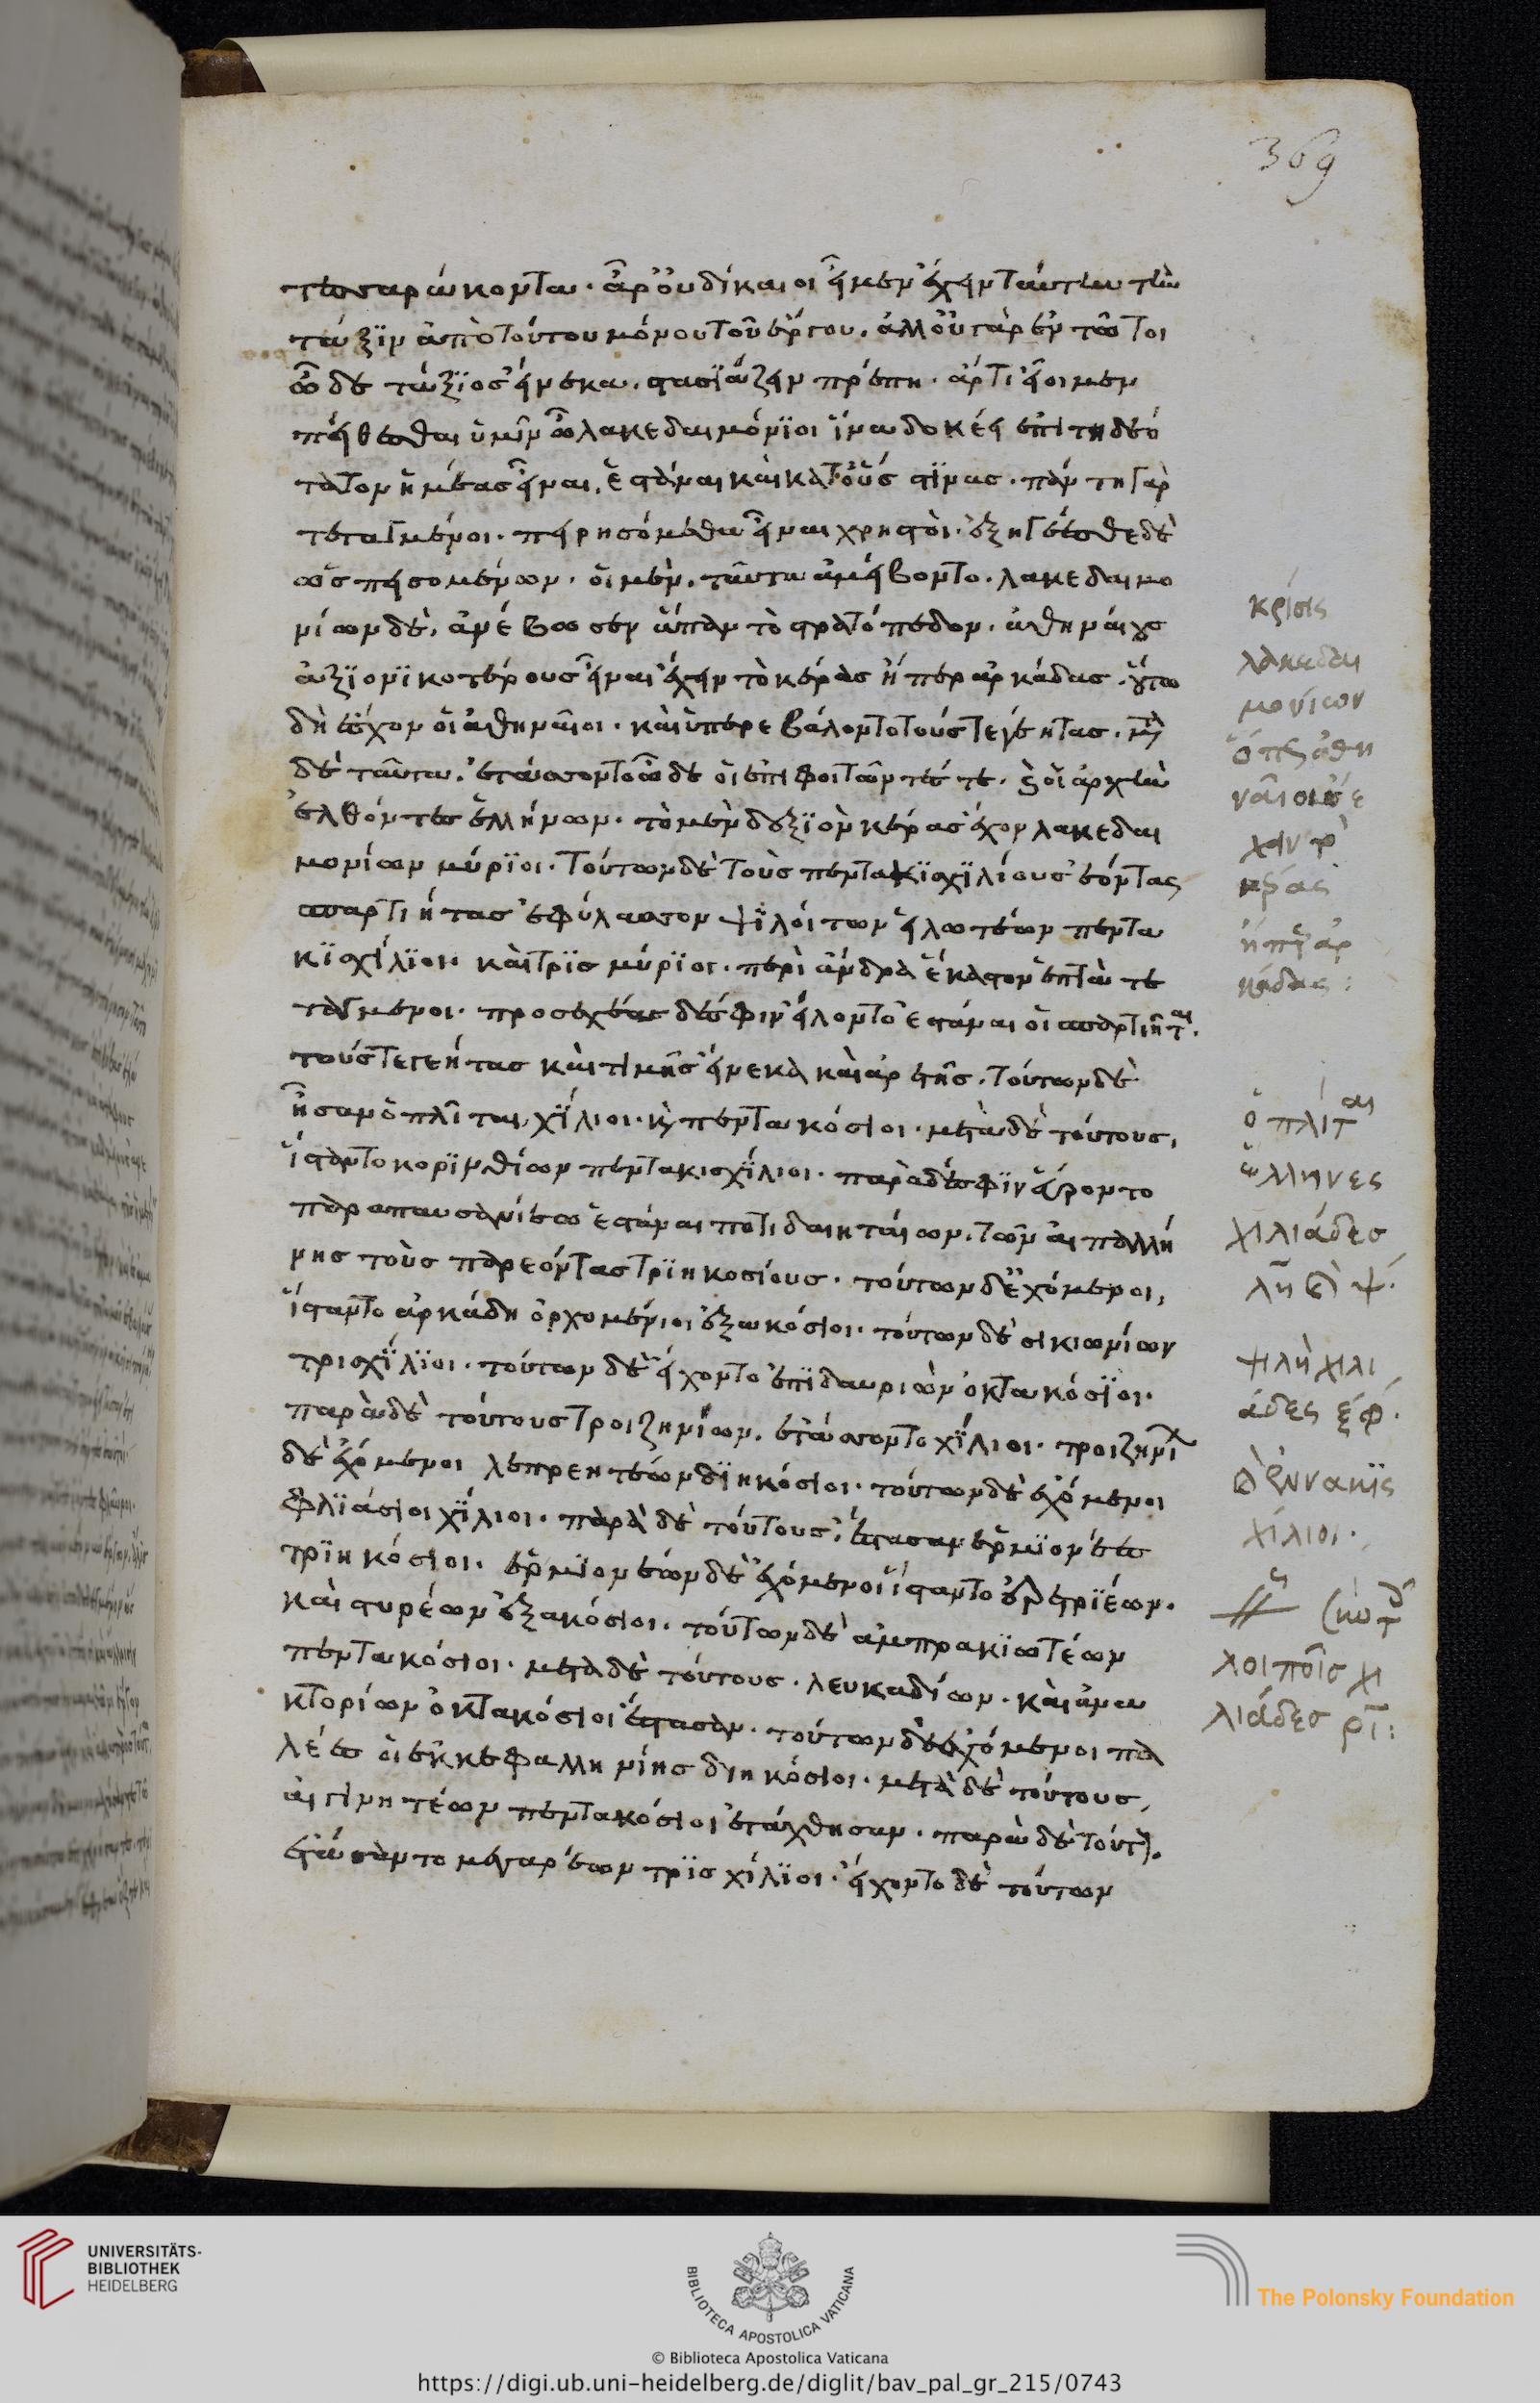 369
τεσσαράκοντα· ἆρ' οὐ δίκαιοι εἰμεν ἔχειν ταύτην τὴν
τάξϊν ἀπὸ τούτου μόνου τοῦ ἔργου. ἀλλ' οὐ γὰρ ἐν τῶ τοι
ῶδε τάξϊος εἵνεκα. στασϊάζειν πρέπει· ἄρτι εἰοι μεν
πείθεσθαι ὑμῖν ῶ λακεδαιμόνϊοι ἵνα δοκέει ἐπιτηδεό
τατον ἡμέας εἶναι. ἑστάναι καὶ κατ' οὕς τϊνας· πάντη γὰρ
τεταγμένοι· πειρησόμεθα εἶναι χρηστοί· ἐξηγέεσθε δὲ
ὡς πεισομένων· οἱ μὲν. ταῦτα ἀμείβοντο· λακεδαιμο
νίων δὲ, ἀνέβωσεν ἅπαν τὸ στρατόπεδον. ἀθηναίους
ἀξϊονϊκοτέρους εἶναι ἔχειν τὸ κέρας ἤπερ ἀρκάδας. οὕτω
δὴ ἔσχον οἱ ἀθηναῖοι· καὶ ὑπερεβάλοντο τοὺς τεγεήτας. μετὰ
δὲ ταῦτα. ἐτάσσοντο ῶδε οἱ ἐπιφοιτῶντές τε. καὶ οἱ ἀρχὴν
ἐλθόντες ἑλλήνων. τὸ μὲν δεξϊὸν κέρας εἶχον λακεδαι
μονίων μύρϊοι· τούτων δὲ τοὺς πεντακϊσχϊλίους ἐόντας
σπαρτιήτας ἐφύλασσον ψϊλοὶ τῶν εἱλωτέων πεντα
κϊσχίλϊοι· καὶ τρϊσμύρϊοι· περὶ ἄνδρα ἕκαστον ἑπτὰ τε
ταγμένοι. προσεχέας δέ σφιν εἵλοντο ἑστάναι οἱ σπαρτιῆται.
τοὺς τεγεήτας καὶ τιμῆς εἵνεκα καὶ ἀρετῆς. τούτων δὲ
ἦσαν ὁπλῖται χΐλιοι· καὶ πεντακόσιοι· μετὰ δὲ τούτους,
ἵσταντο κορϊνθίων πεντακισχΐλιοι. παρὰ δέ σφϊν εὕροντο
παρὰ παυσανίεω ἑστάναι ποτιδαιητάιων. τῶν ἀι παλλή
νης τοὺς παρεόντας τρϊηκοσίους. τούτων δ' ἐχόμενοι,
ἵσταντο ἀρκάδη ὀρχομένιοι ἑξακόσιοι. τούτων δὲ σικιωνίων
τρισχΐλϊοι. τούτων δὲ εἴχοντο ἐπϊδαυριῶν ὀκτακόσϊοι.
παρὰ δὲ τούτους τροιζηνίων. ἐτάσσοντο χΐλιοι. τροιζηνίων
δὲ ἐχόμενοι λεπρεητέων δϊηκόσιοι. τούτων δὲ ἐχόμενοι
φλϊάσιοι χΐλιοι. παρὰ δὲ τούτους, ἔστασαν ἑρμϊονέες
τρϊηκόσιοι. ἑρμϊονέων δὲ ἐχόμενοι ἵσταντο ἐρετρϊέων.
καὶ στυρέων ἑξακόσιοι. τούτων δὲ ἀμπρακϊωτέων
πεντακόσιοι. μετὰ δὲ τούτους. λευκαδίων. καὶ ἀνα
κτορίων ὀκτακόσιοι ἔστασαν. τούτων δὲ ἐχόμενοι πα
λέες οἱ ἐκ κεφαλληνίης διηκόσιοι. μετὰ δὲ τούτους,
αἰγινητέων πεντακόσιοι ἐτάχθησαν. παρὰ δὲ τούτους.
ἐτάσσαντο μεγαρέων τρϊσχίλϊοι. εἴχοντο δὲ τούτων
κρίσις
λακεδαι
μονίων
ὅπως ἀθη
ναῖοι ἔ
χειν τὸ
κέρας
ἤπερ ἀρ
κάδας:
ὁπλίται
ἕλληνες
χιλιάδες
ψιλὴ χιλι
άδες
χίλιοι.
λοιποῖς χι
λιάδες ρι:
UNIVERSITÄTS-
BIBLIOTHEK
HEIDELBERG
BIBLIOTECA APOSTOLICA VATICANA
The Polonsky Foundation
© Biblioteca Apostolica Vaticana
https://digi.ub.uni-heidelberg.de/diglit/bav_pal_gr_215/0743